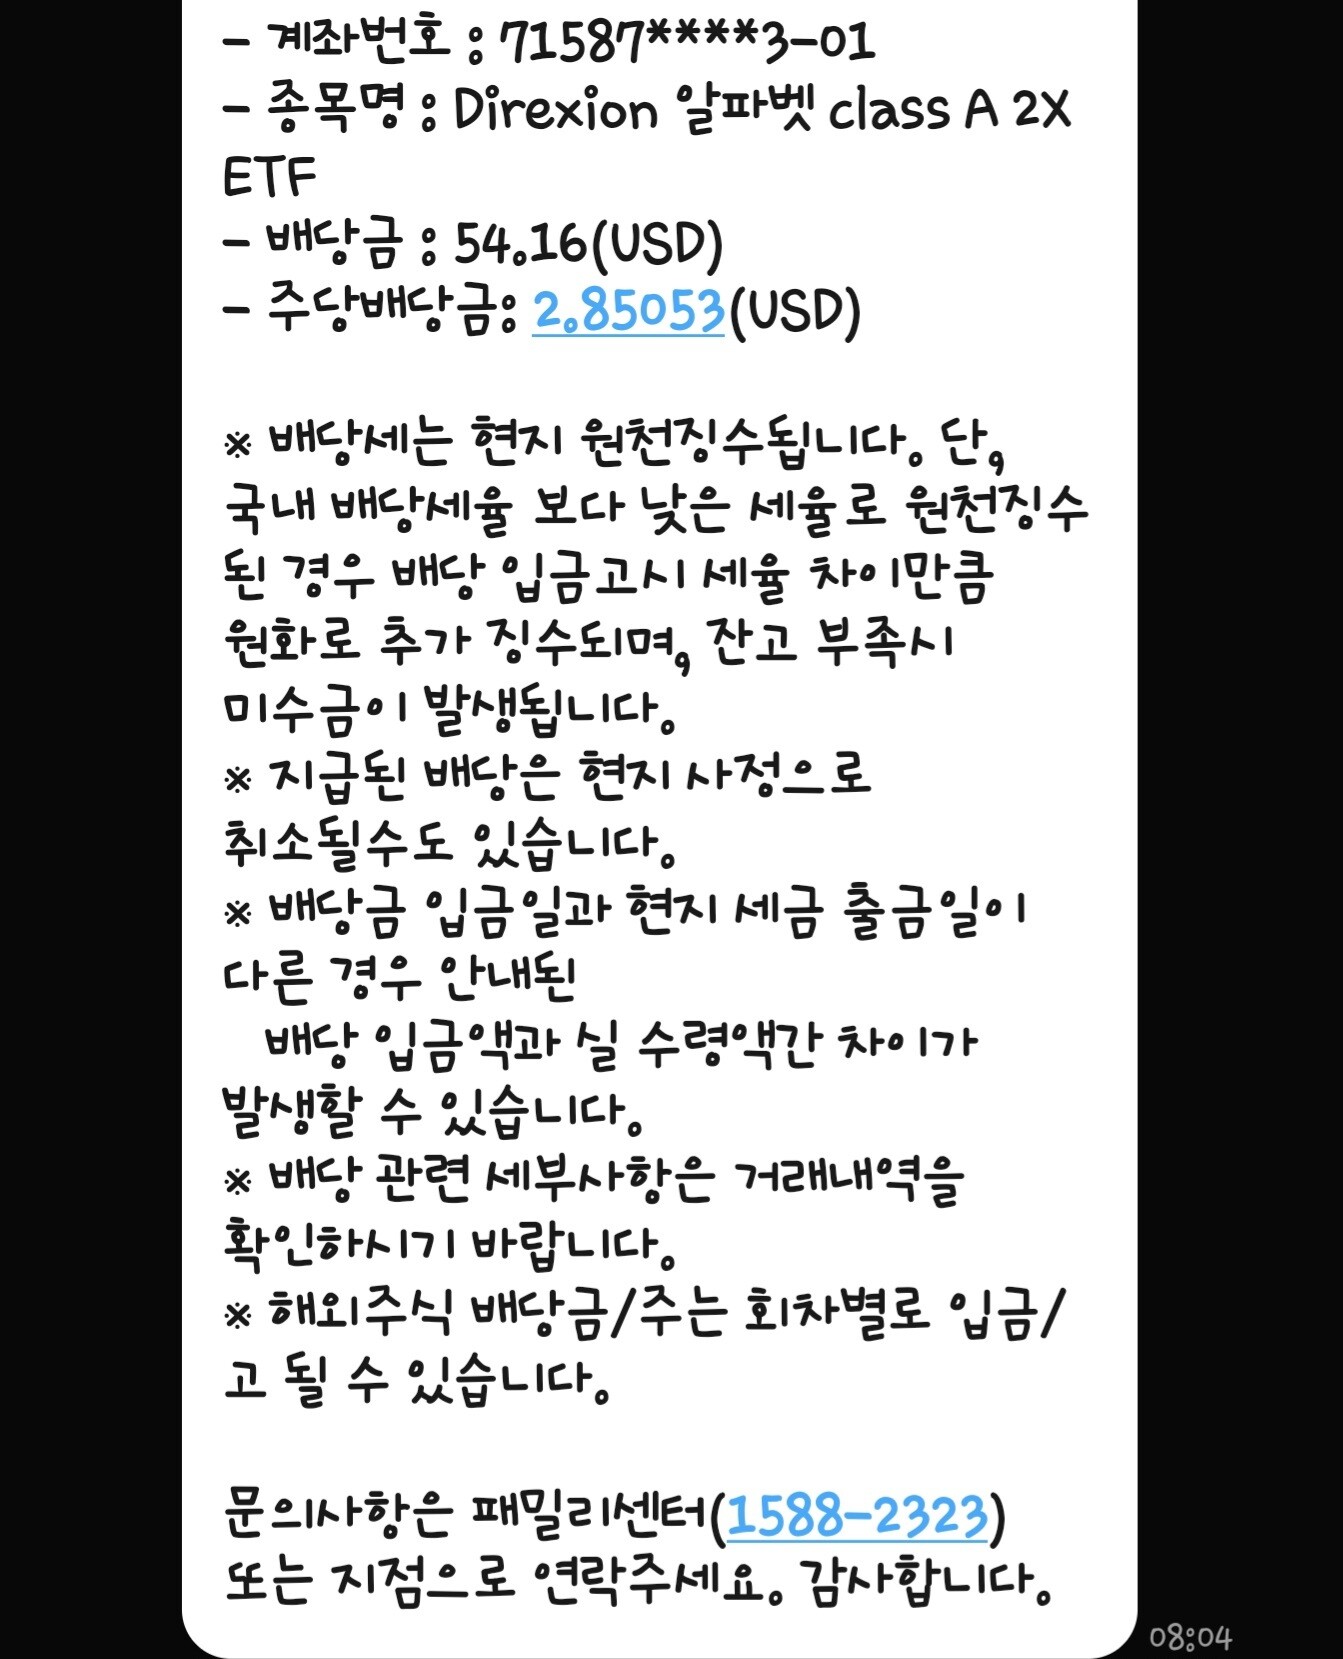 - 계좌번호 : 71587****3-01
- 종목명 : Direxion 알파벳 class A 2X
ETF
- 배당금 : 54.16(USD)
- 주당배당금: 2.85053(USD)
※ 배당세는 현지 원천징수됩니다. 단,
국내 배당세율 보다 낮은 세율로 원천징수
된 경우 배당 입금고시 세율 차이만큼
원화로 추가 징수되며, 잔고 부족시
미수금이 발생됩니다.
※ 지급된 배당은 현지 사정으로
취소될수도 있습니다.
※ 배당금 입금일과 현지 세금 출금일이
다른 경우 안내된
배당 입금액과 실 수령액간 차이가
발생할 수 있습니다.
※ 배당 관련 세부사항은 거래내역을
확인하시기 바랍니다.
※ 해외주식 배당금/주는 회차별로 입금/
고 될 수 있습니다.
문의사항은 패밀리센터(1588-2323)
또는 지점으로 연락주세요. 감사합니다.
08:04